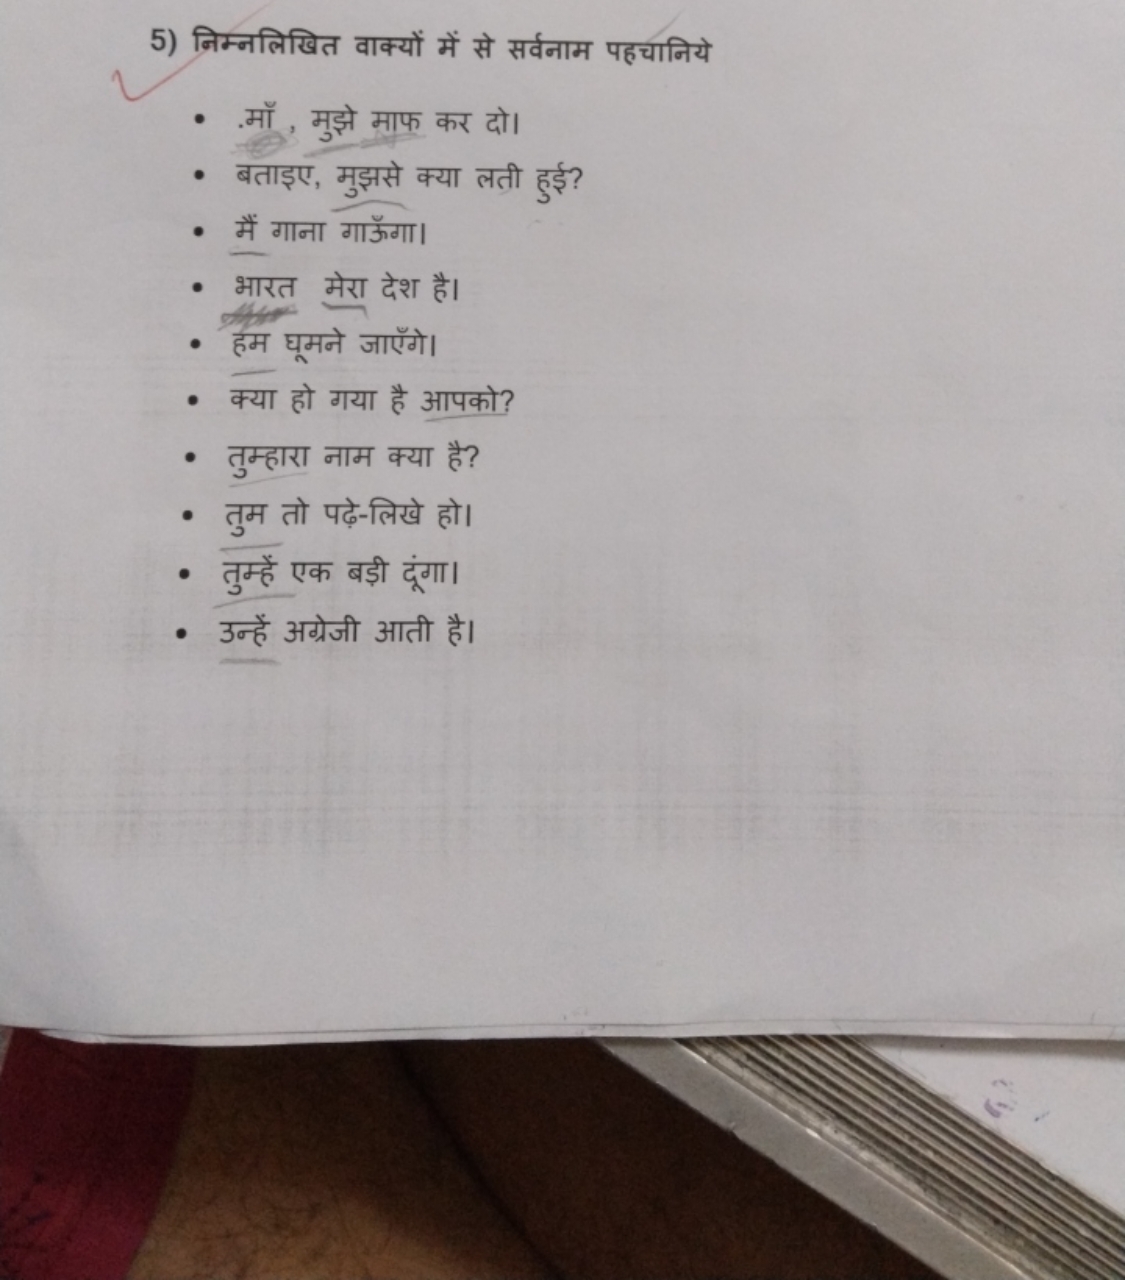 5) निम्नलिखित वाक्यों में से सर्वनाम पहचानिये
• .माँ , मुझे माफ कर दो।
• बताइए, मुझसे क्या लती हुई?
• मैं गाना गाऊँगा।
• भारत मेरा देश है।
• हम घूमने जाएँगे।
• क्या हो गया है आपको?
• तुम्हारा नाम क्या है?
• तुम तो पढ़े-लिखे हो।
• तुम्हें एक बड़ी दूंगा।
• उन्हें अग्रेजी आती है।